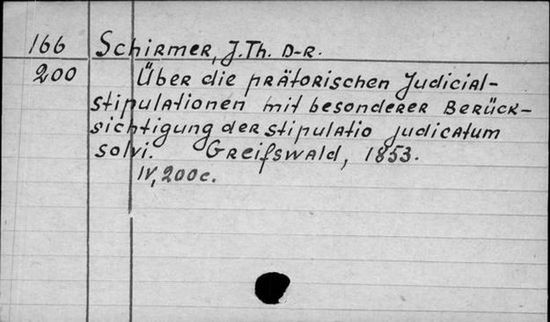 166 Schirmer, J. Th. D-r.
200 Über die prätorischen Judicial-
stipulationen mit besonderer Berück-
sichtigung der stipulatio judicatum
solvi. Greifswald, 1853.
IV, 200c.